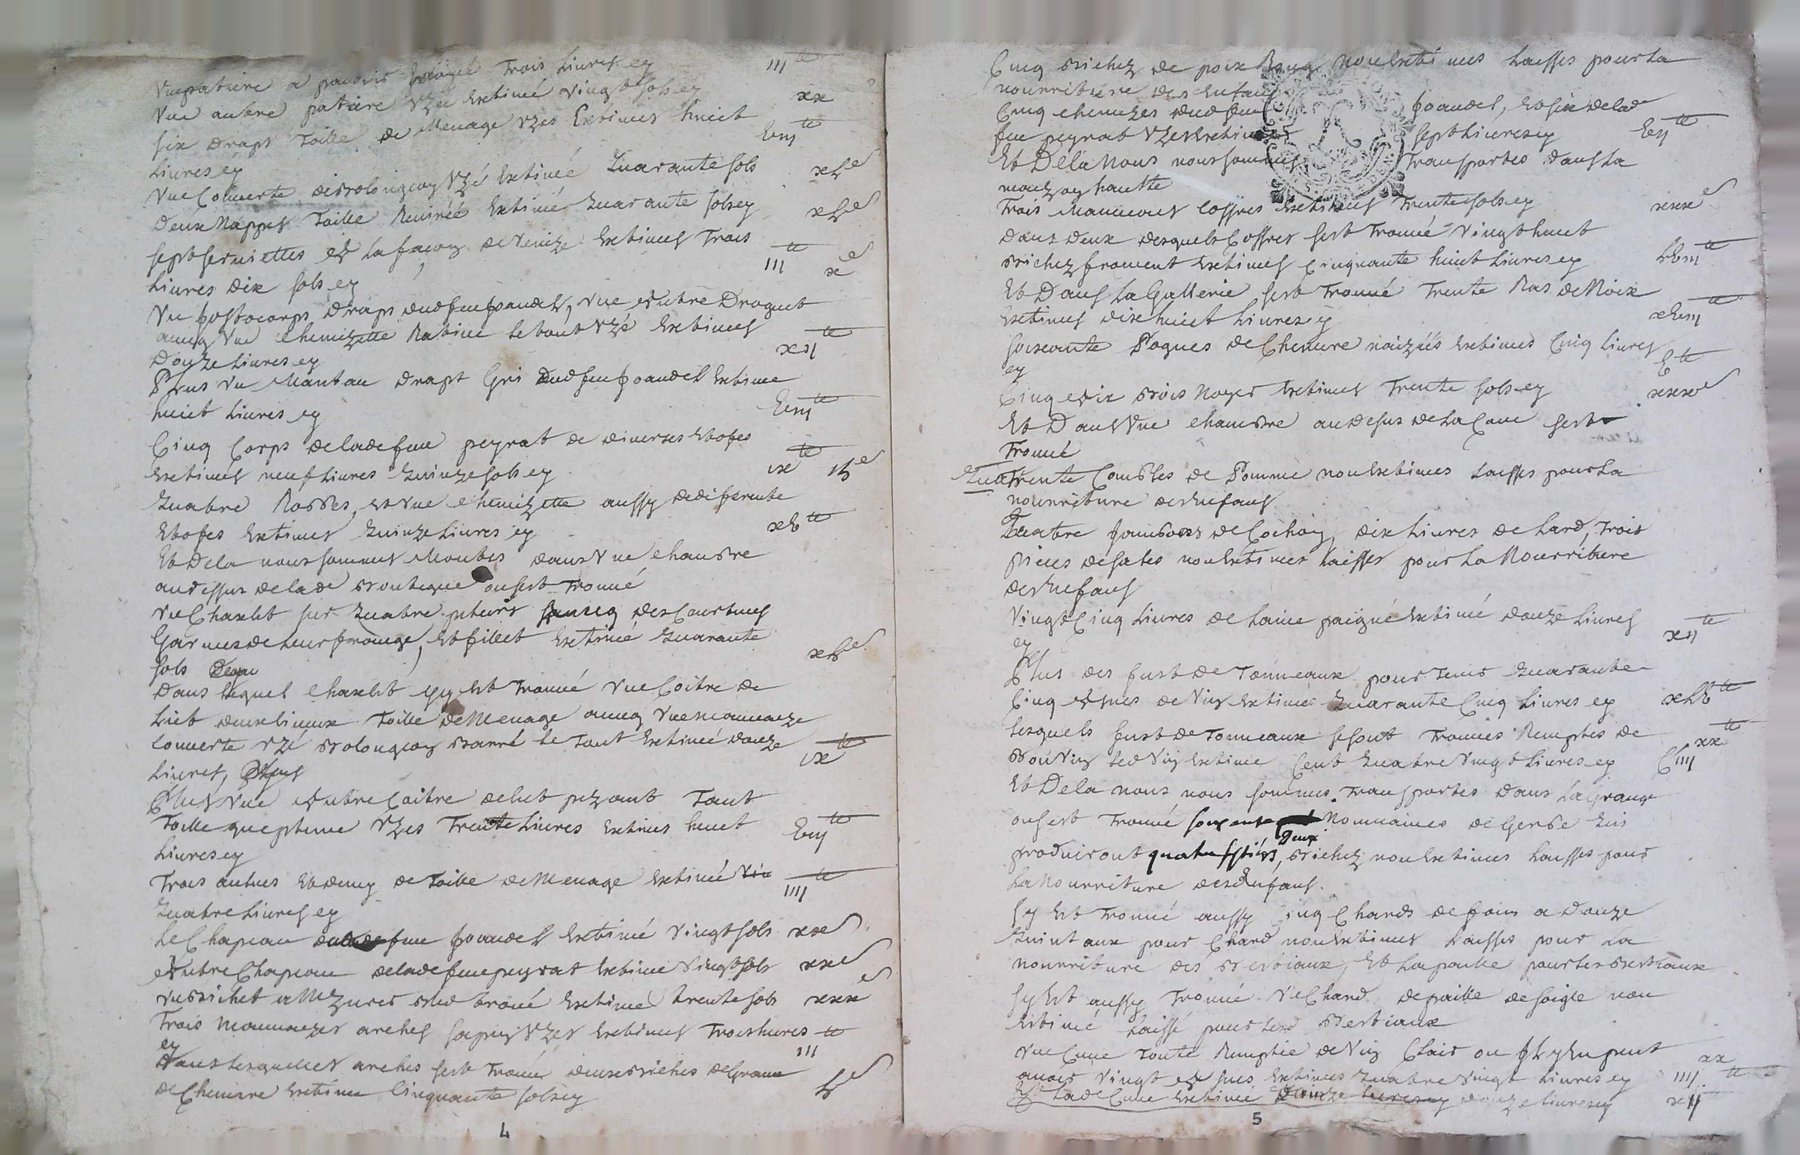 Une patiere a paonis Extimée Trois Livres cy iii tt
Une autre patiere Uzée Extimé Vingt sols cy xx
six draps Toille de Menage Uzés Extimés huict
Livres cy viii tt
Une Couverte Uzé Extimé Quarante sols xl s
Deux Nappes Toille Extimé Quarante sols cy xl s
sept serviettes et la façon de Venize Extimés Trois
Livres dix sols cy iii tt x s
Un Justocorps Draps dud feu Joandel, Une autre Droguet
avecq Une chemizette Ratine le tout Uzé Extimés
Douze Livres cy xii tt
Plus Un Mantau Drapt Gris dud feu Joandel Extimé
huict Livres cy viii tt
Cinq Corps de lade feue peyrat de diverses Etofes
Extimés neuf Livres Quinze sols cy ix tt 15 s
Quatre Robbes, et Une Chemizette aussy de diferente
Etofes Extimés Quinze Livres cy xv tt
Et Dela nous sommes Montés dans Une Chambre
au dessus de lade Boutique ou sest Trouvé
Un Chaslit sur Quatre des Courtines
Garnies de leur frange, Et fillet Extimé Quarante
sols xl s
Dans lequel Chaslit sy est Trouvé Une Coitre de
Lict deux linceux Toille de Menage avecq Une mauvaize
Couverte Uzé barré le Tout Extimé douze
Livres, ix tt
Plus Une autre Coitre de lict pezant Tant
Toille que plume Uzés Trente Livres Extimés huict
Livres cy viii tt
Trois autres Et demy de Toille de Menage Extimé
Quatre Livres cy iiii tt
Le Chapeau feu Joandel Extimé Vingt sols xx s
autre Chapeau de lade feue peyrat Extimé Vingt sols xx s
Un Bichet a Mezurer bled Extimé trente sols xxx s
Trois Mauvaizes arches sapin Uzés Extimés Trois Livres
cy iii tt
Dans lesquelles arches sest Trouvé deux Biches de Graine
de Chenvre Extimé Cinquante sols cy L s
4
Cinq Bichez de poix non Extimés Laissés pour La
nourriture des Enfans
Cinq chemizes dud feu Joandel, Et six de lade
feu peyrat Uzes Extimés sept Livres cy vii tt
Et Dela Nous nous sommes Transportés dans La
maizon hautte
Trois Mauvais Coffres Extimés Trente sols cy xxx s
Dans Deux desquels Coffres sest Trouvé Vingt huict
Bichez froment Extimés Cinquante huict Livres cy Lviii tt
Et Dans La Gallerie sest Trouvé Trente Ras de Noix
Extimés dix huict Livres cy xviii tt
soixante Pognes de Chenvre naizées Extimés Cinq Livres
cy v tt
Cinq Bois Noyer Extimés Trente sols cy xxx s
Et Dans Une Chambre au desus de la Cave sest
Trouvé
Trente Combles de Pomme non Extimés Laissés pour La
nourriture des Enfans
Quatre Jambons de Cochon, dix Livres de Lard, Trois
pieces de sales non Extimés Laissés pour La Nourriture
des Enfans
Vingt Cinq Livres de Laine paigné Extimé douze Livres
cy xii tt
Plus des fust de Tonneaux pour Tenir Quarante
Cinq de Vin Extimés Quarante Cinq Livres cy xLv tt
Lesquels fust de Tonneaux se sont Trouvés Remplis de
bon Vin led Vin Extimé Cent Quatre Vingt Livres cy C iiii xx tt
Et Dela nous nous sommes Transportés dans La Grange
ou sest Trouvé soixante Nouvaines de Gerbe Qui
produiront quatre Deux Bichez non Extimés Laissés pour
La Nourriture des Enfans.
sy est Trouvé aussy Cinq Chards de foins a Douze
Quintaux pour Chard non Extimés Laissés pour La
nourriture des Bestiaux, Et La paille pour les Bestiaux
sy est aussy Trouvé Un Chard de paille de soigle non
Extimé Laissé pour led Bestiaux
Une Cuve Toute Remplie de Vin Clair ou Il y en peut
avoir Vingt Extimés Quatre Vingt Livres cy iiii xx tt
Lade Cuve Extimé douze Livres cy xii tt
5